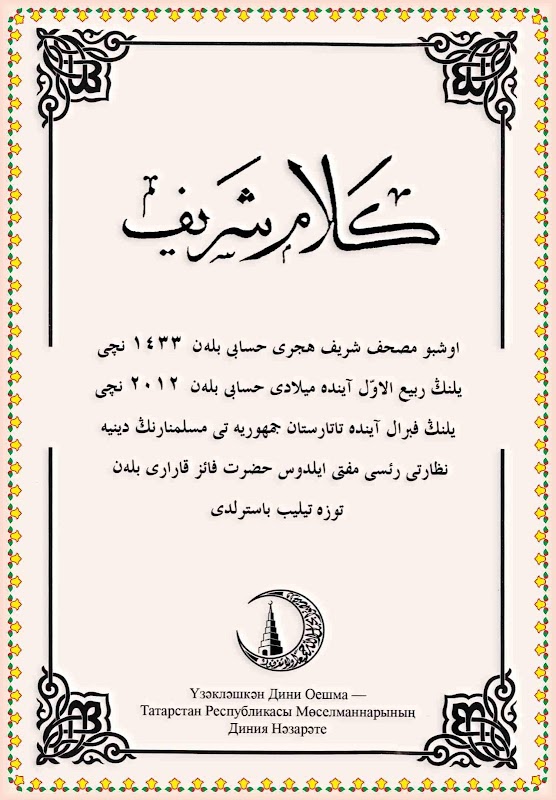 كلام شريف
اوشبو مصحف شريف هجرى حسابى بلەن ١٤٣٣ نچى
يلنڭ ربيع الاوّل آينده ميلادى حسابى بلەن ٢٠١٢ نچى
يلنڭ فبرال آينده تاتارستان جمهوريه تى مسلمنارنڭ دينيه
نظارتى رئسى مفتى ايلدوس حضرت فائز قارارى بلەن
توزه تيليب باسترلدى
Үзәкләшкән Дини Оешма —
Татарстан Республикасы Мөселманнарының
Диния Нәзарәте